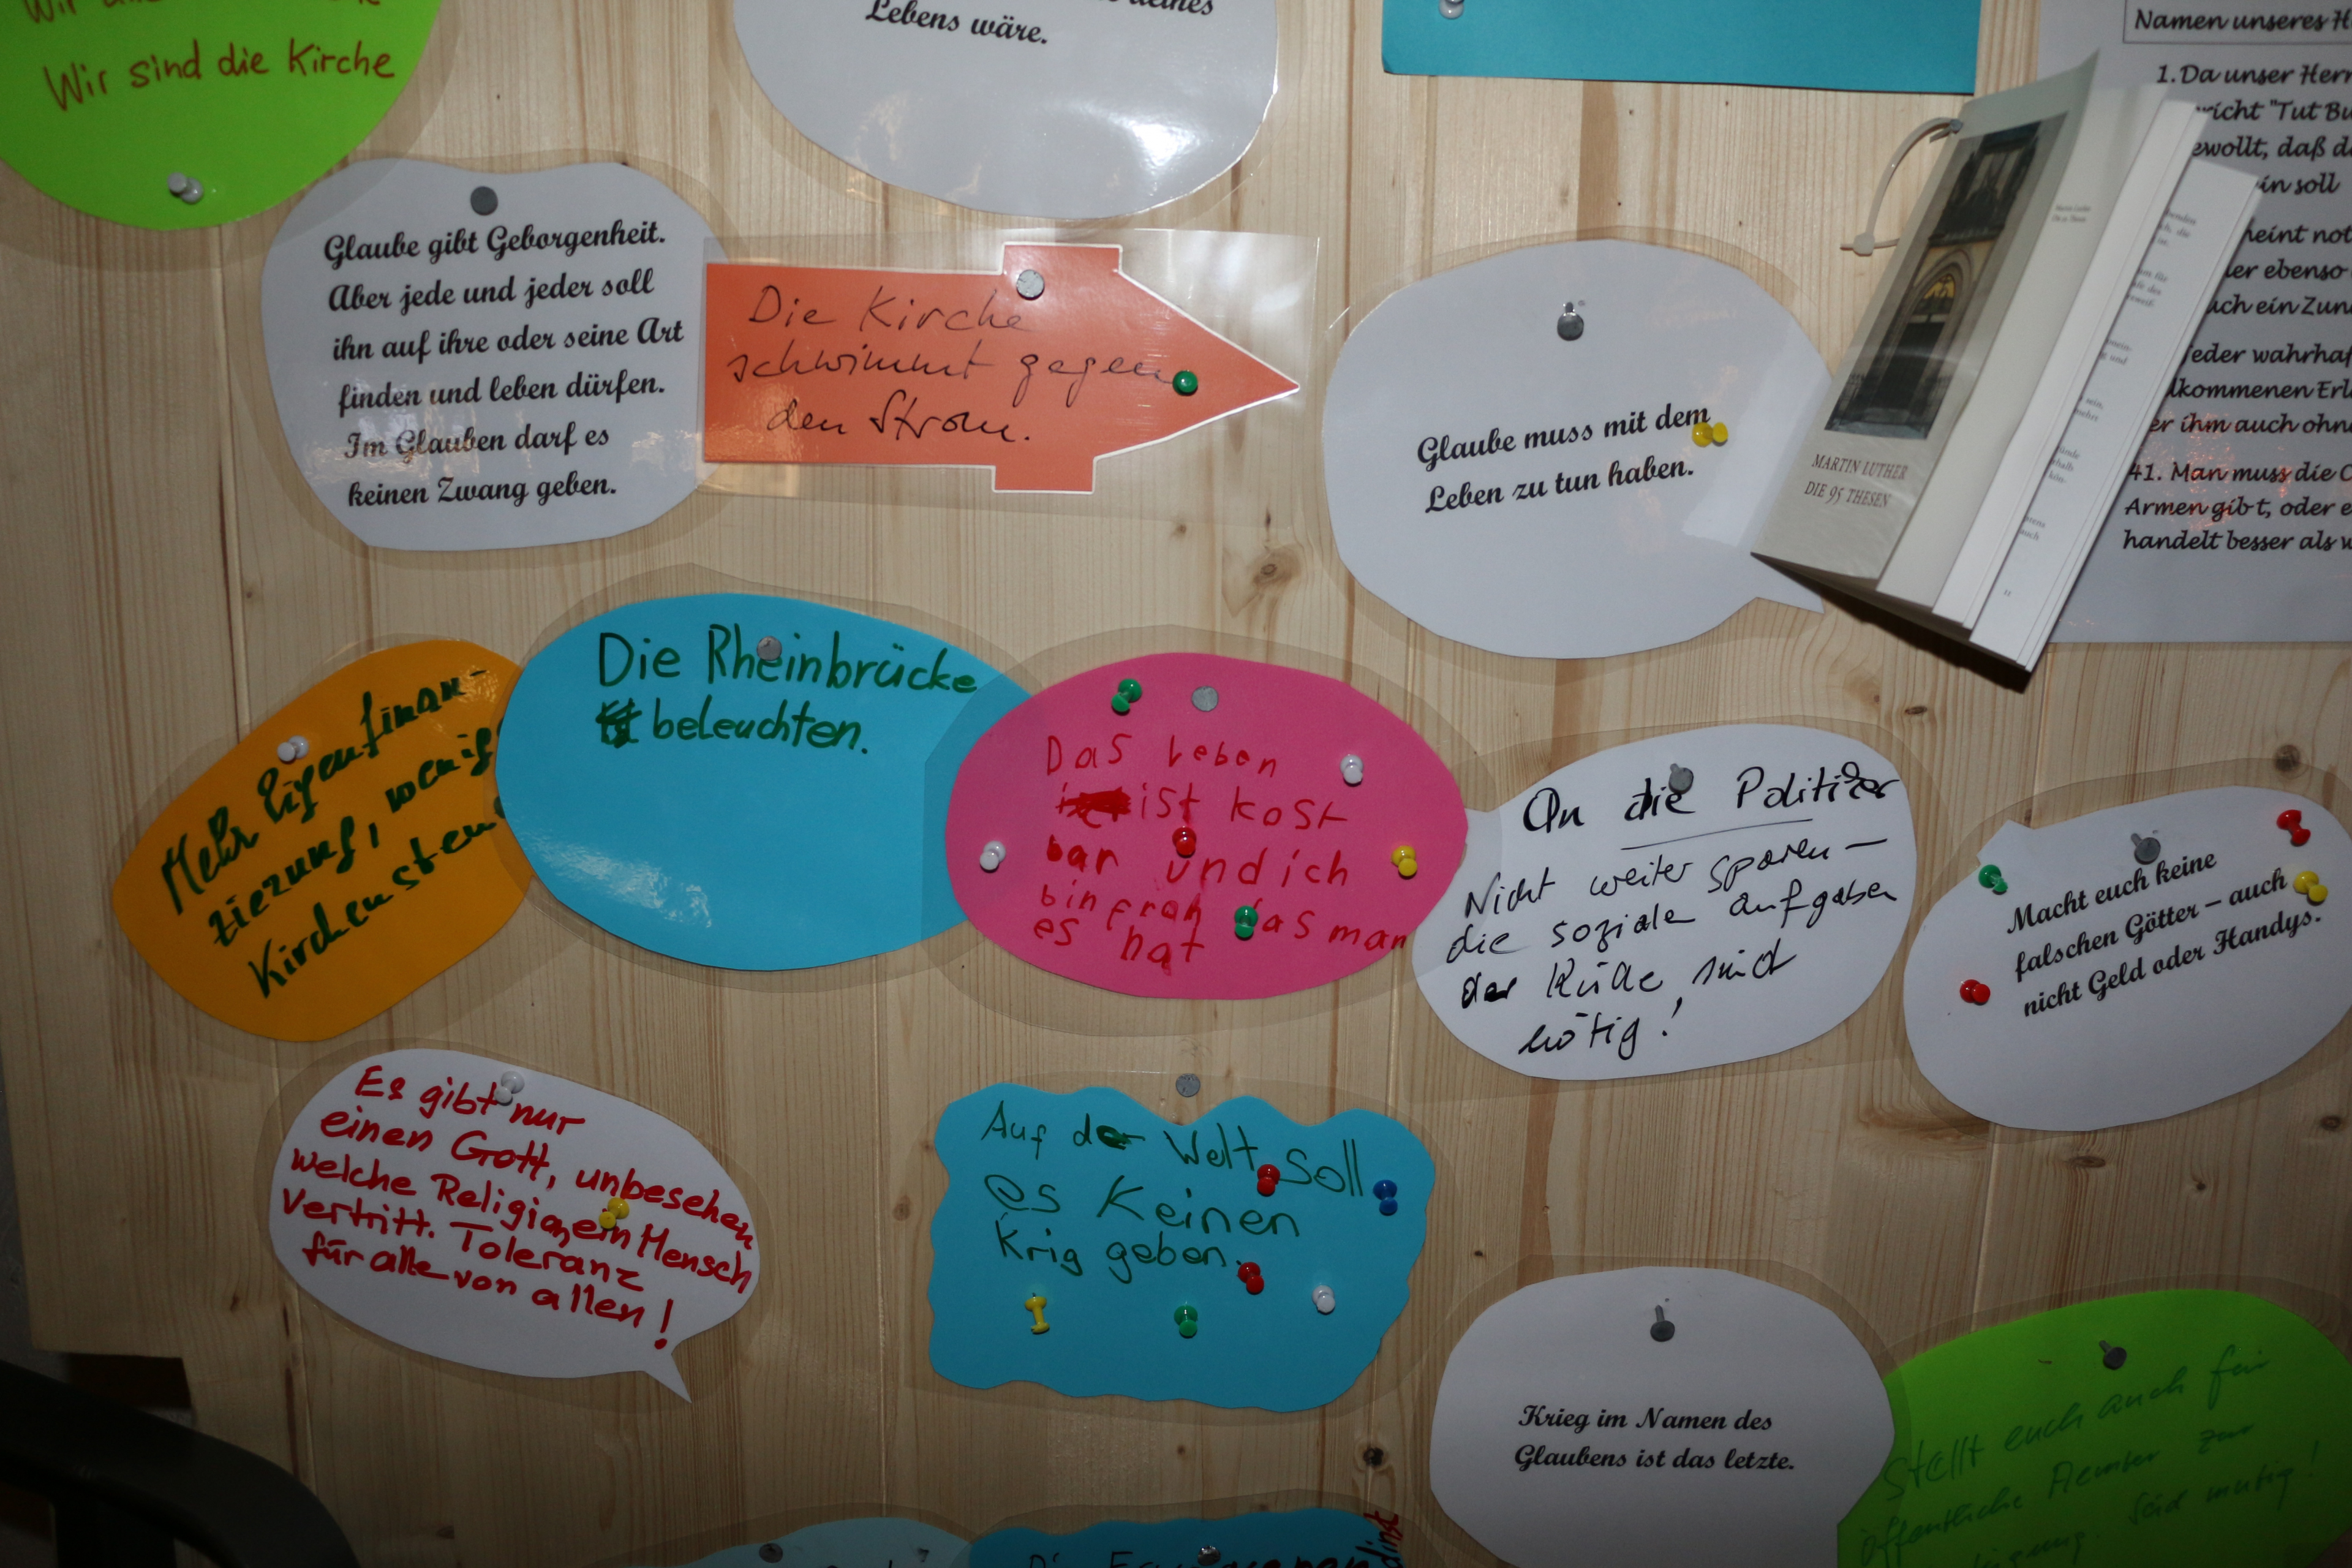 Wir sind die Kirche
deines
Lebens wäre.
Namen unseres H
1. Da unser Herr
richt "Tut Bu
ewollt, daß d
in soll
heint not
er ebenso
uch ein Zun
jeder wahrhaf
lkommenen Erl
er ihm auch ohn
41. Man muss die
Armen gibt, oder e
handelt besser als w
MARTIN LUTHER
DIE 95 THESEN
Glaube gibt Geborgenheit.
Aber jede und jeder soll
ihn auf ihre oder seine Art
finden und leben dürfen.
Im Glauben darf es
keinen Zwang geben.
Die Kirche
schwimmt gegen
den Strom.
Glaube muss mit dem
Leben zu tun haben.
Mehr Eigenfinan-
zierung, wenig
Kirchensteu
Die Rheinbrücke
beleuchten.
Das Leben
ist kost
bar und ich
bin froh das man
es hat
An die Politiker
Nicht weiter sparen –
die soziale Aufgaben
der Kirche sind
nötig!
Macht euch keine
falschen Götter – auch
nicht Geld oder Handys.
Es gibt nur
einen Gott, unbesehen
welche Religion ein Mensch
vertritt. Toleranz
für alle von allen!
Auf der Welt soll
es Keinen
Krig geben.
Krieg im Namen des
Glaubens ist das letzte.
Stellt euch auch für
öffentliche Aemter zur
Seid mutig!